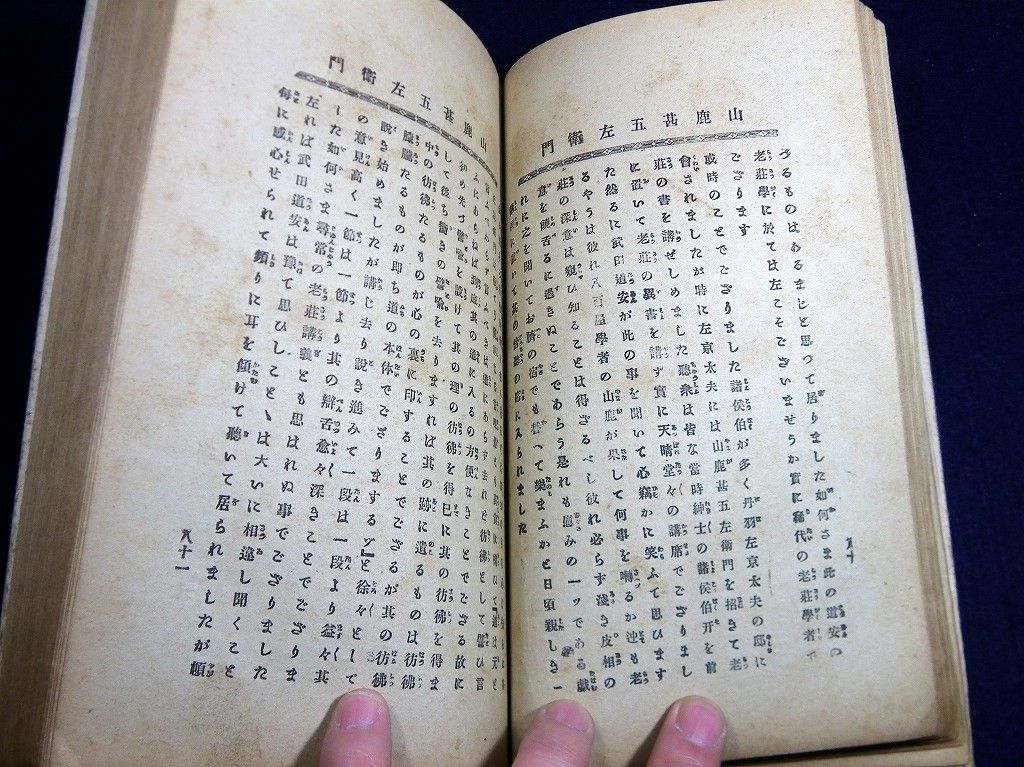 山鹿甚五左衛門
づるものはあるまじと思つて居りました如何さま此の道安の
老莊學に於ては左こそございませうか實に稀代の老莊學者で
ござります
或時のことでござりました諸侯伯が多く丹羽左京太夫の邸に
會されましたが時に左京太夫には山鹿甚五左衛門を招きて老
莊の書を講ぜしめました聽衆は皆な當時紳士の諸侯伯
に置いて老莊の異書を講ず實に天晴堂々の講席でござりまし
た然るに武田道安が此の事を聞いて心竊かに笑ふて思ひます
るやうは彼れ八百屋學者の山鹿が果して何事を囀るか迚も老
莊の深意は窺ひ知ることは得ざるべし彼れ必らず淺き皮相の
意を饒舌るに過ぎぬことであらう是れも慰みの一ツである戯
れに之を聞いてお
八十
山鹿甚五左衛門
初め先づ譬喩を設けて其の理の彷彿を得已に其の彷彿を得ま
して後ち前きの譬喩を去りますれば其の跡に遺るものは彷彿
中の彷彿たるものが心の裏に印することでござるが其の彷彿
朦朧たるものが即ち道の本体でござりまするッ』と徐々として
説き始めましたが講じ去り説き進みて一段は一段より益々其
の意見高く一節は一節より其の辯舌愈々深きことでござりま
した如何さま尋常の老莊講義とも思はれぬ事でござりました
左れば武田道安は豫て思ひしことゝは大いに相違し聞くこと
毎に感心せられて頻りに耳を傾けて聽いて居られましたが頓
八十一